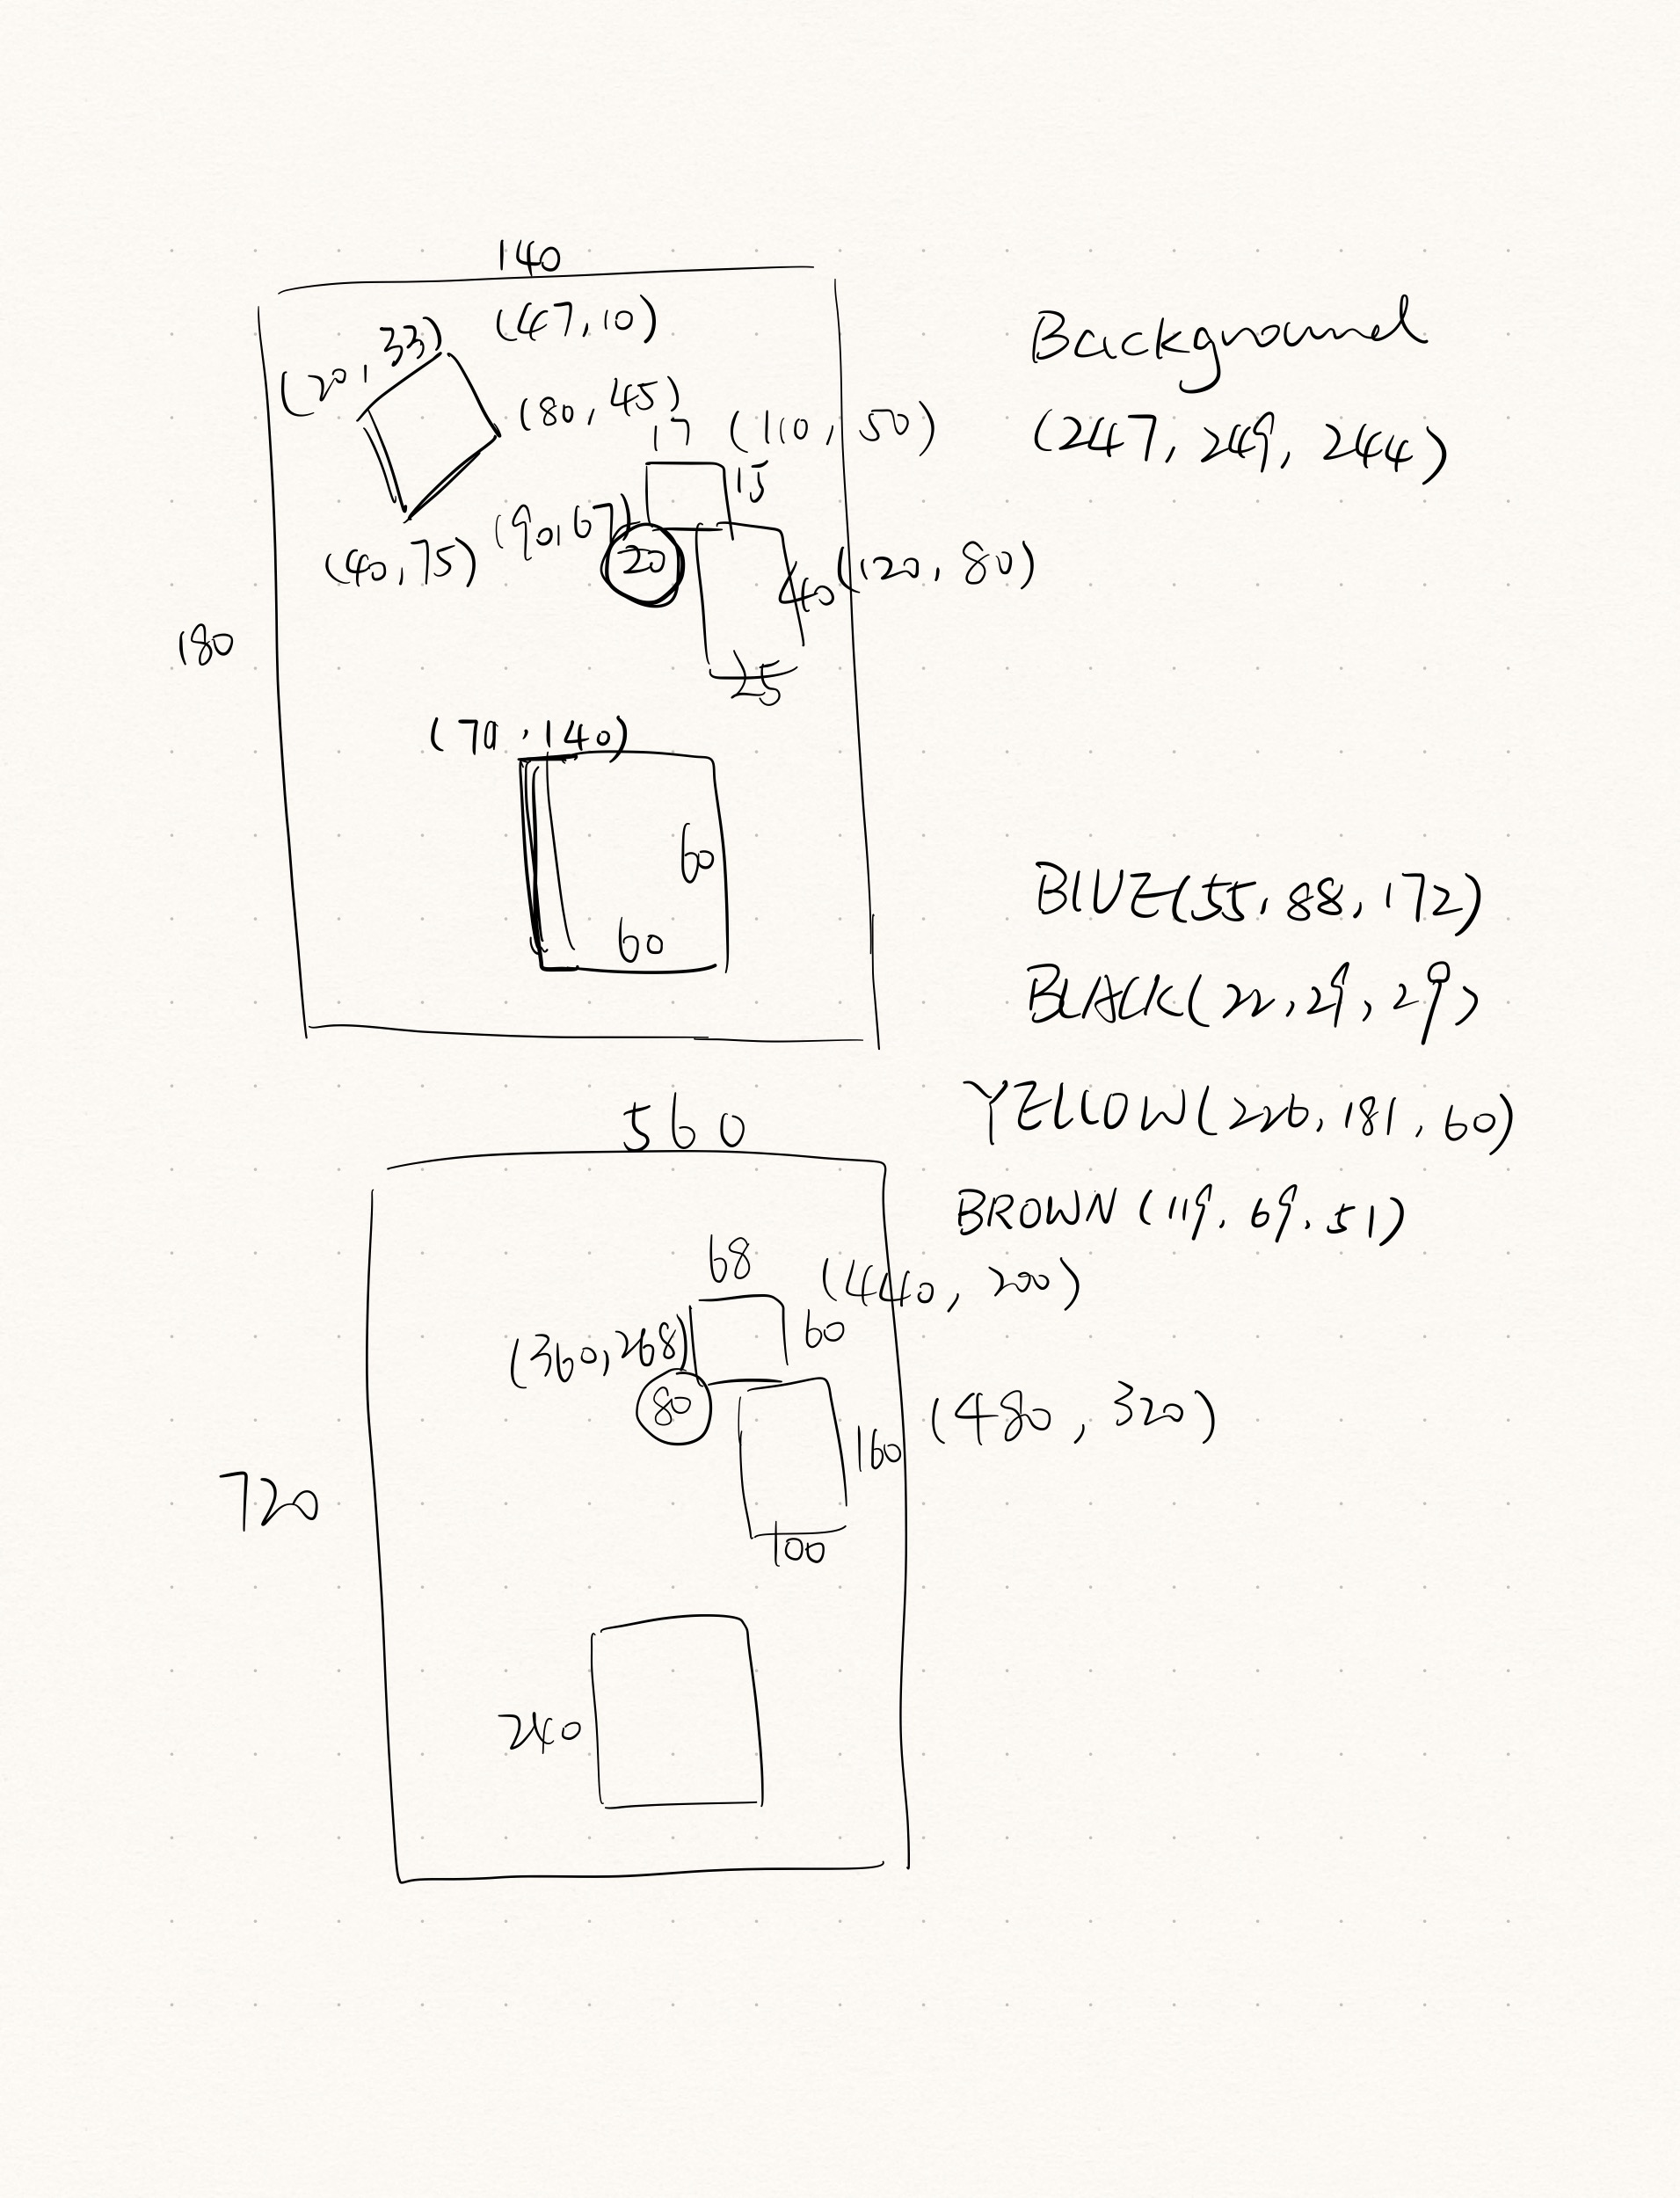 140
(47,10)
(20,33)
(80,45)
17
(110,50)
15
(90,67)
20
(40,75)
40
(120,80)
180
25
(70,140)
60
60
Background
(247,249,244)
BlUE(55,88,172)
BLACK(22,29,29)
YELLOW(226,181,60)
BROWN(119,69,51)
560
68
(440,200)
60
(360,268)
80
(480,320)
160
720
100
240